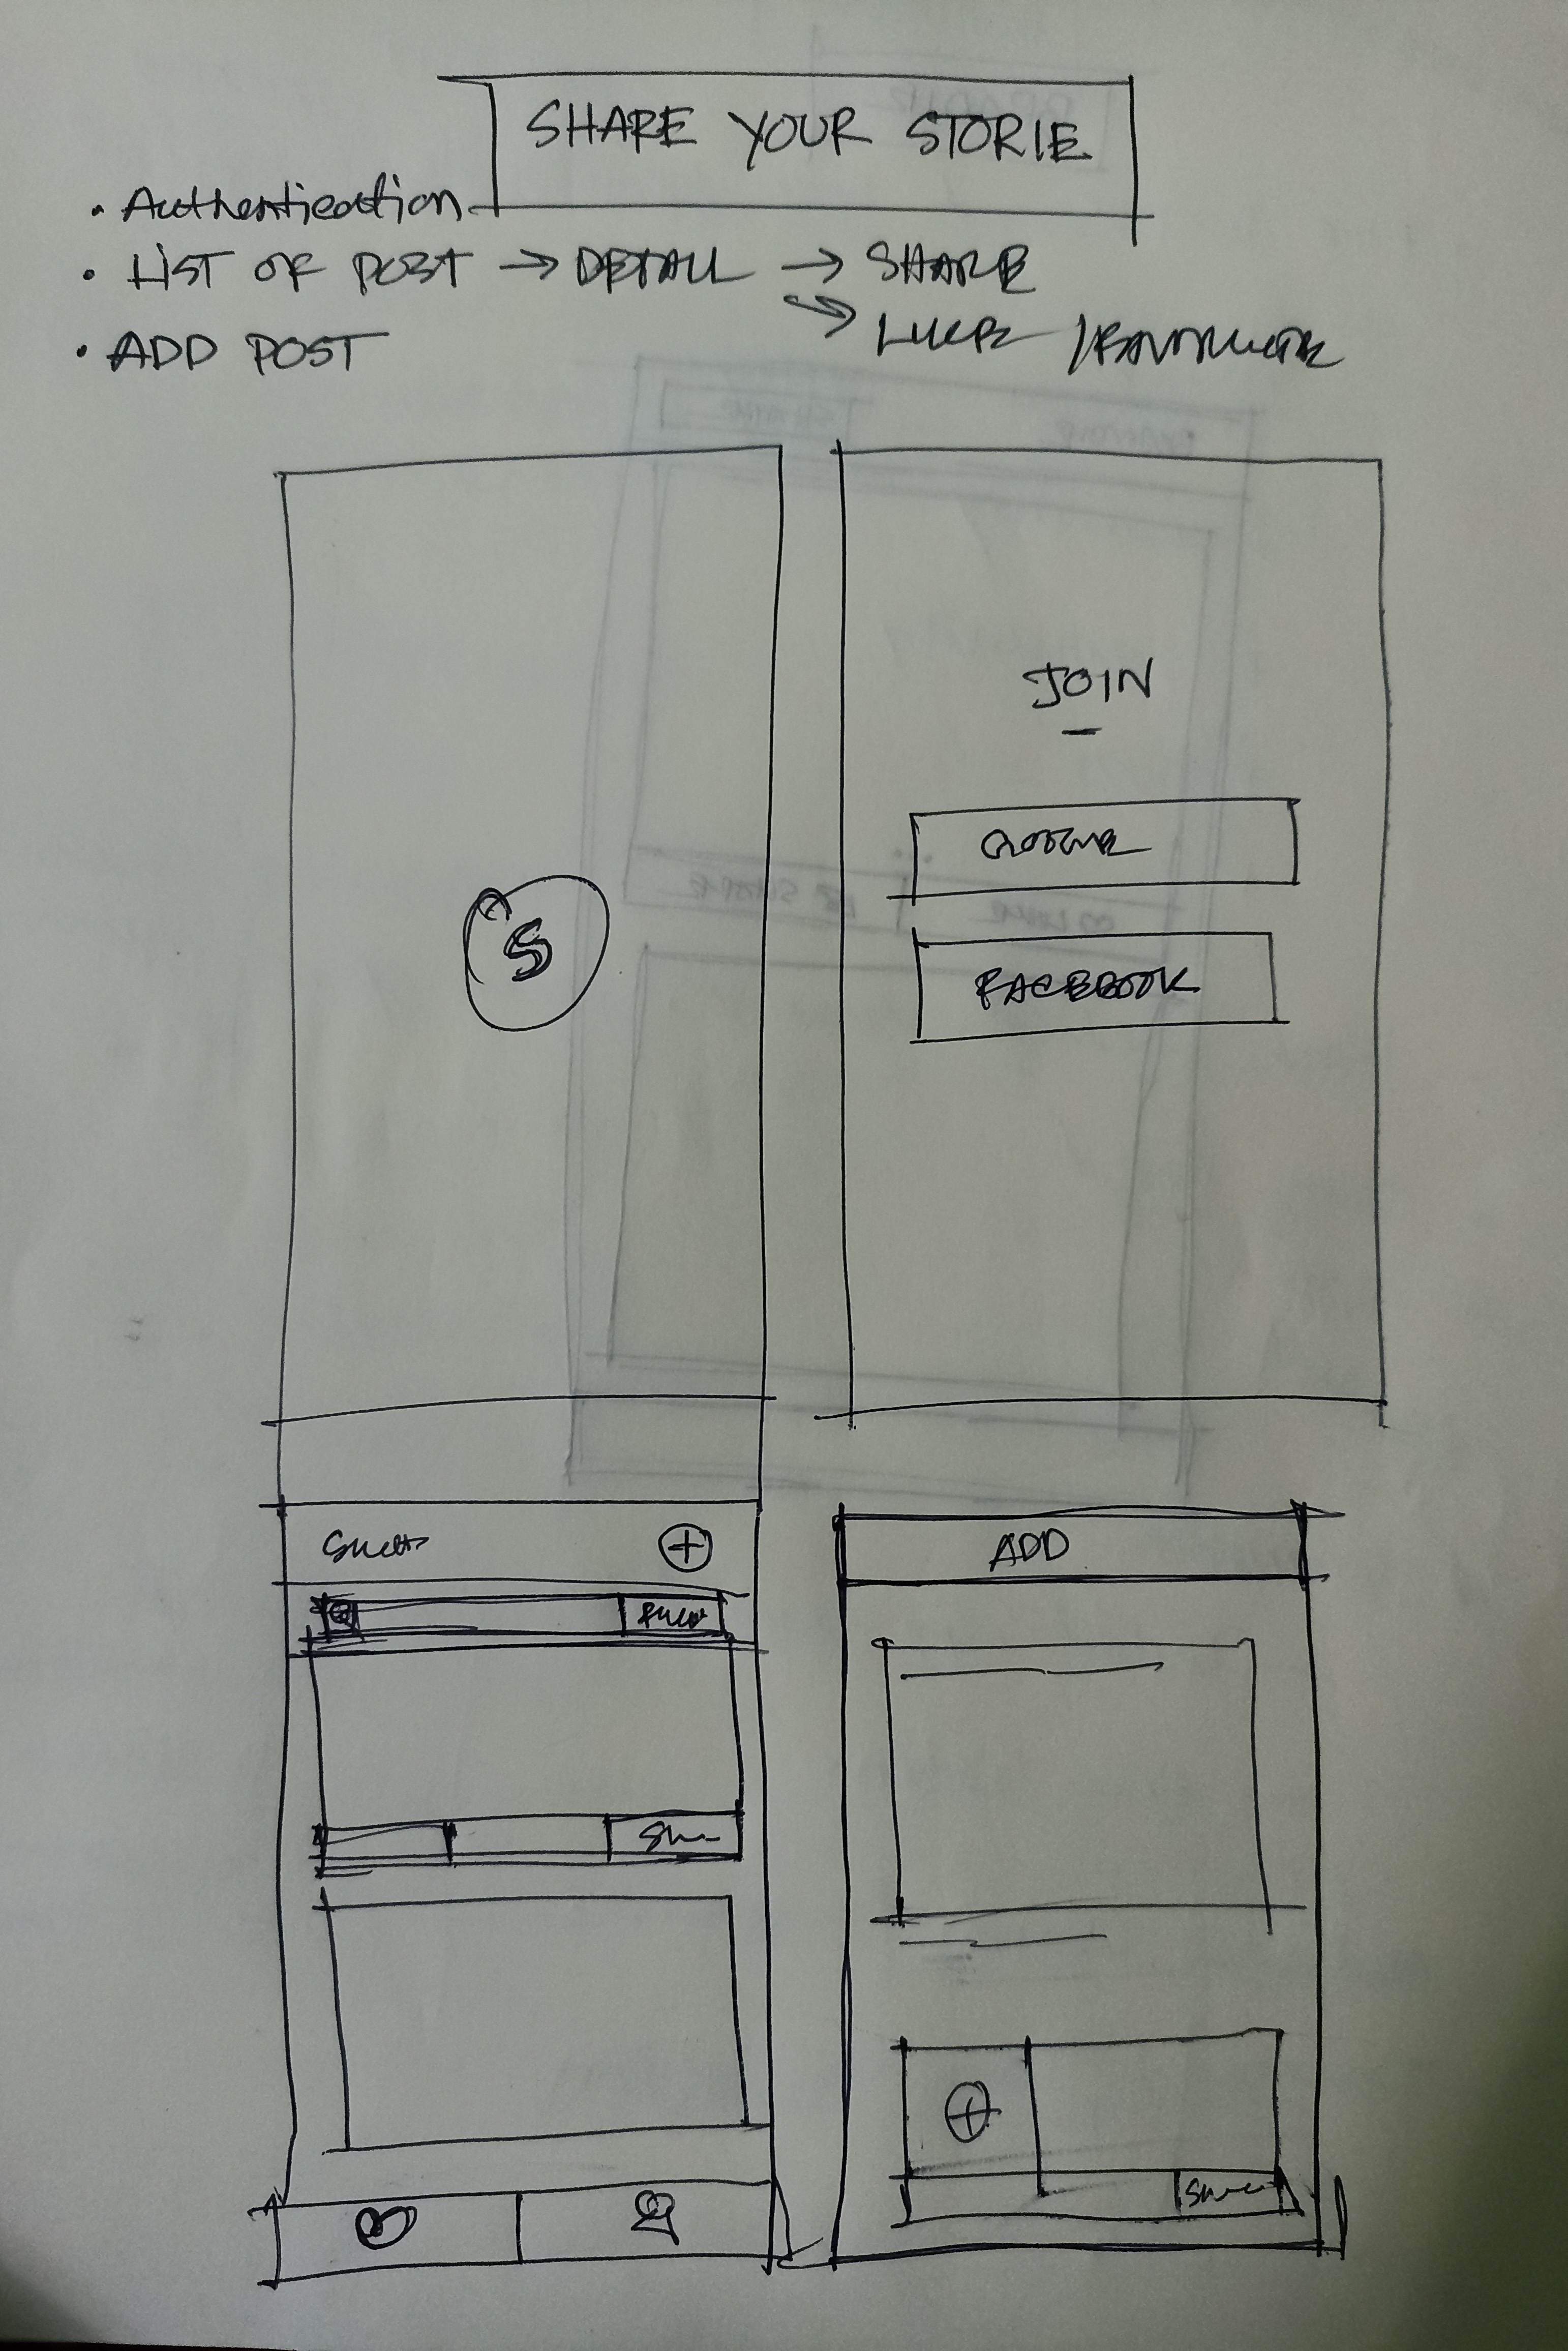 SHARE YOUR STORIE
• Authentication
• LIST OF POST → DETAIL → SHARE
→ LIKE / FAVOURITE
• ADD POST
JOIN
GOOGLE
FACEBOOK
S
ADD